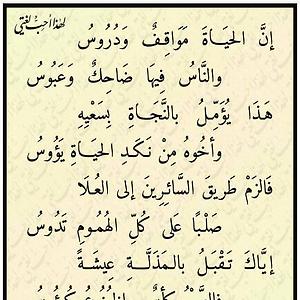 لهذا أحب لغتي
إنَّ الحَيَـاةَ مَوَاقِـفٌ وَدُرُوسُ
والنَّاسُ فِيهَا ضَاحِكٌ وَعَبُوسُ
هَذَا يُؤَمِّلُ بالنَّجَـاةِ بِسَعْيِهِ
وأخُوهُ مِنْ نَكَدِ الحَيـاةِ يَؤُوسُ
فَالزَمْ طَريقَ السَّائِرِينَ إلى العُلَا
صَلْبًا عَلى كُلِّ الهُمُومِ تَدُوسُ
إيَّاكَ تَـقْبَـلُ بالـمَذَلَّـةِ عِيشَـةً